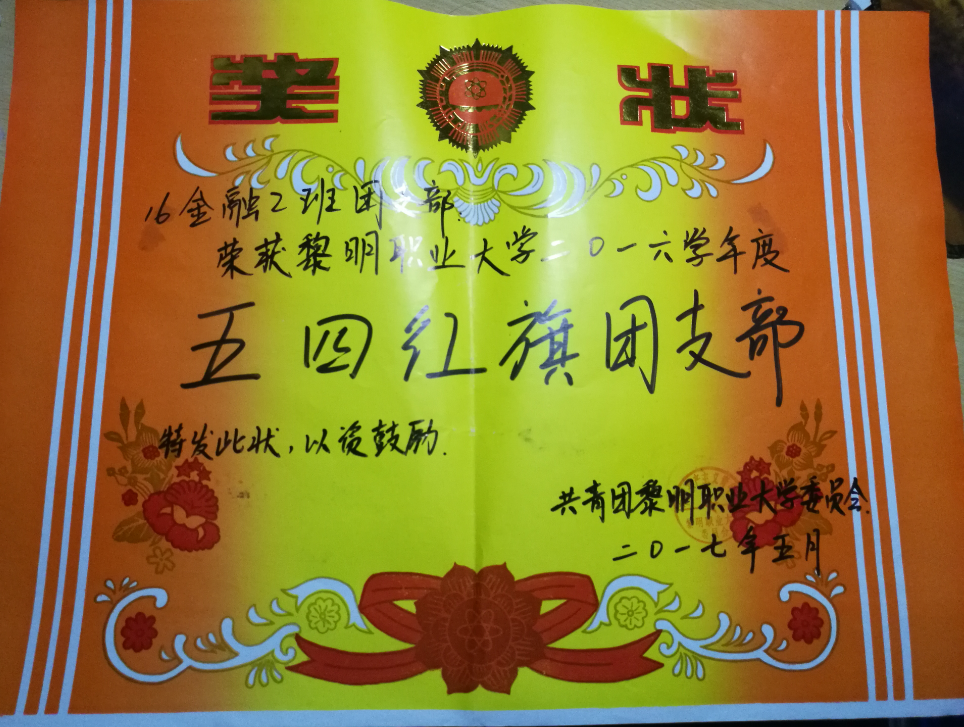 奖状
16金融2班团支部:
荣获黎明职业大学二0一六学年度
五四红旗团支部
特发此状,以资鼓励.
共青团黎明职业大学委员会.
二0一七年五月